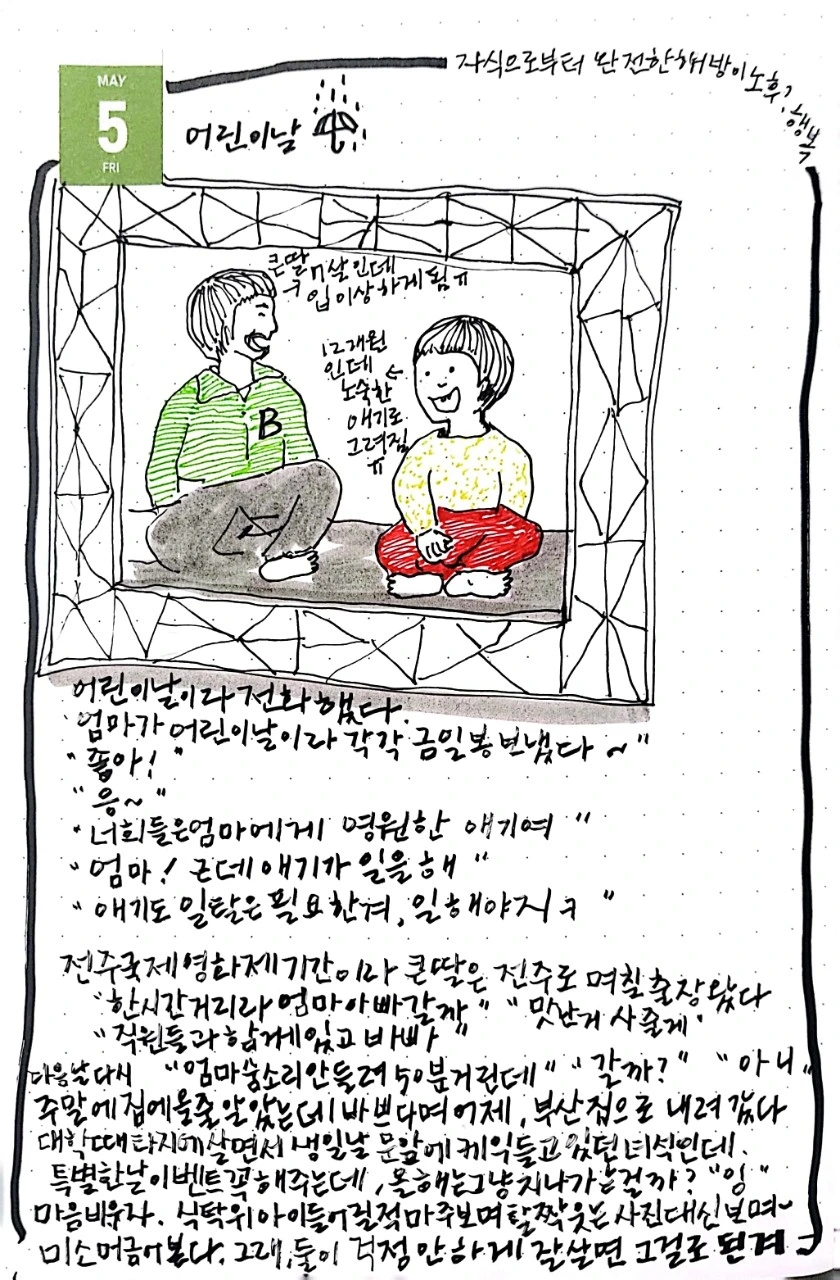 MAY
5
FRI
어린이날
자식으로부터 완전한 해방이 노후? 행복
큰딸 7살인데
입 이상하게 됨 ㅠ
12개월
인데
노숙한
애기로
그려짐
ㅠ
B
어린이날이라 전화했다.
엄마가 어린이날이라 각각 금일봉 보냈다 ~"
"좋아!"
"응~"
"너희들은 엄마에게 영원한 애기여"
"엄마! 근데 애기가 일을 해"
"애기도 일탈은 필요한겨, 일해야지 ㅋ"
전주국제영화제 기간이라 큰딸은 전주로 며칠 출장왔다
"한시간거리라 엄마아빠갈까" "맛난거 사줄게"
"직원들과 함께 있고 바빠"
다음날 다시 "엄마 숨소리 안들려 50분거린데" "갈까?" "아니"
주말에 집에 올줄 알았는데 바쁘다며 어제, 부산집으로 내려갔다
대학때 타지에 살면서 생일날 문앞에 케익들고 있던 녀석인데.
특별한날 이벤트 꼭 해주는데, 올해는 그냥 지나가는걸까? "잉"
마음비우자. 식탁위 아이들 어릴적 마주보며 활짝 웃는 사진 대신 보며~
미소 머금어 본다. 그래, 둘이 걱정 안하게 잘살면 그걸로 된겨